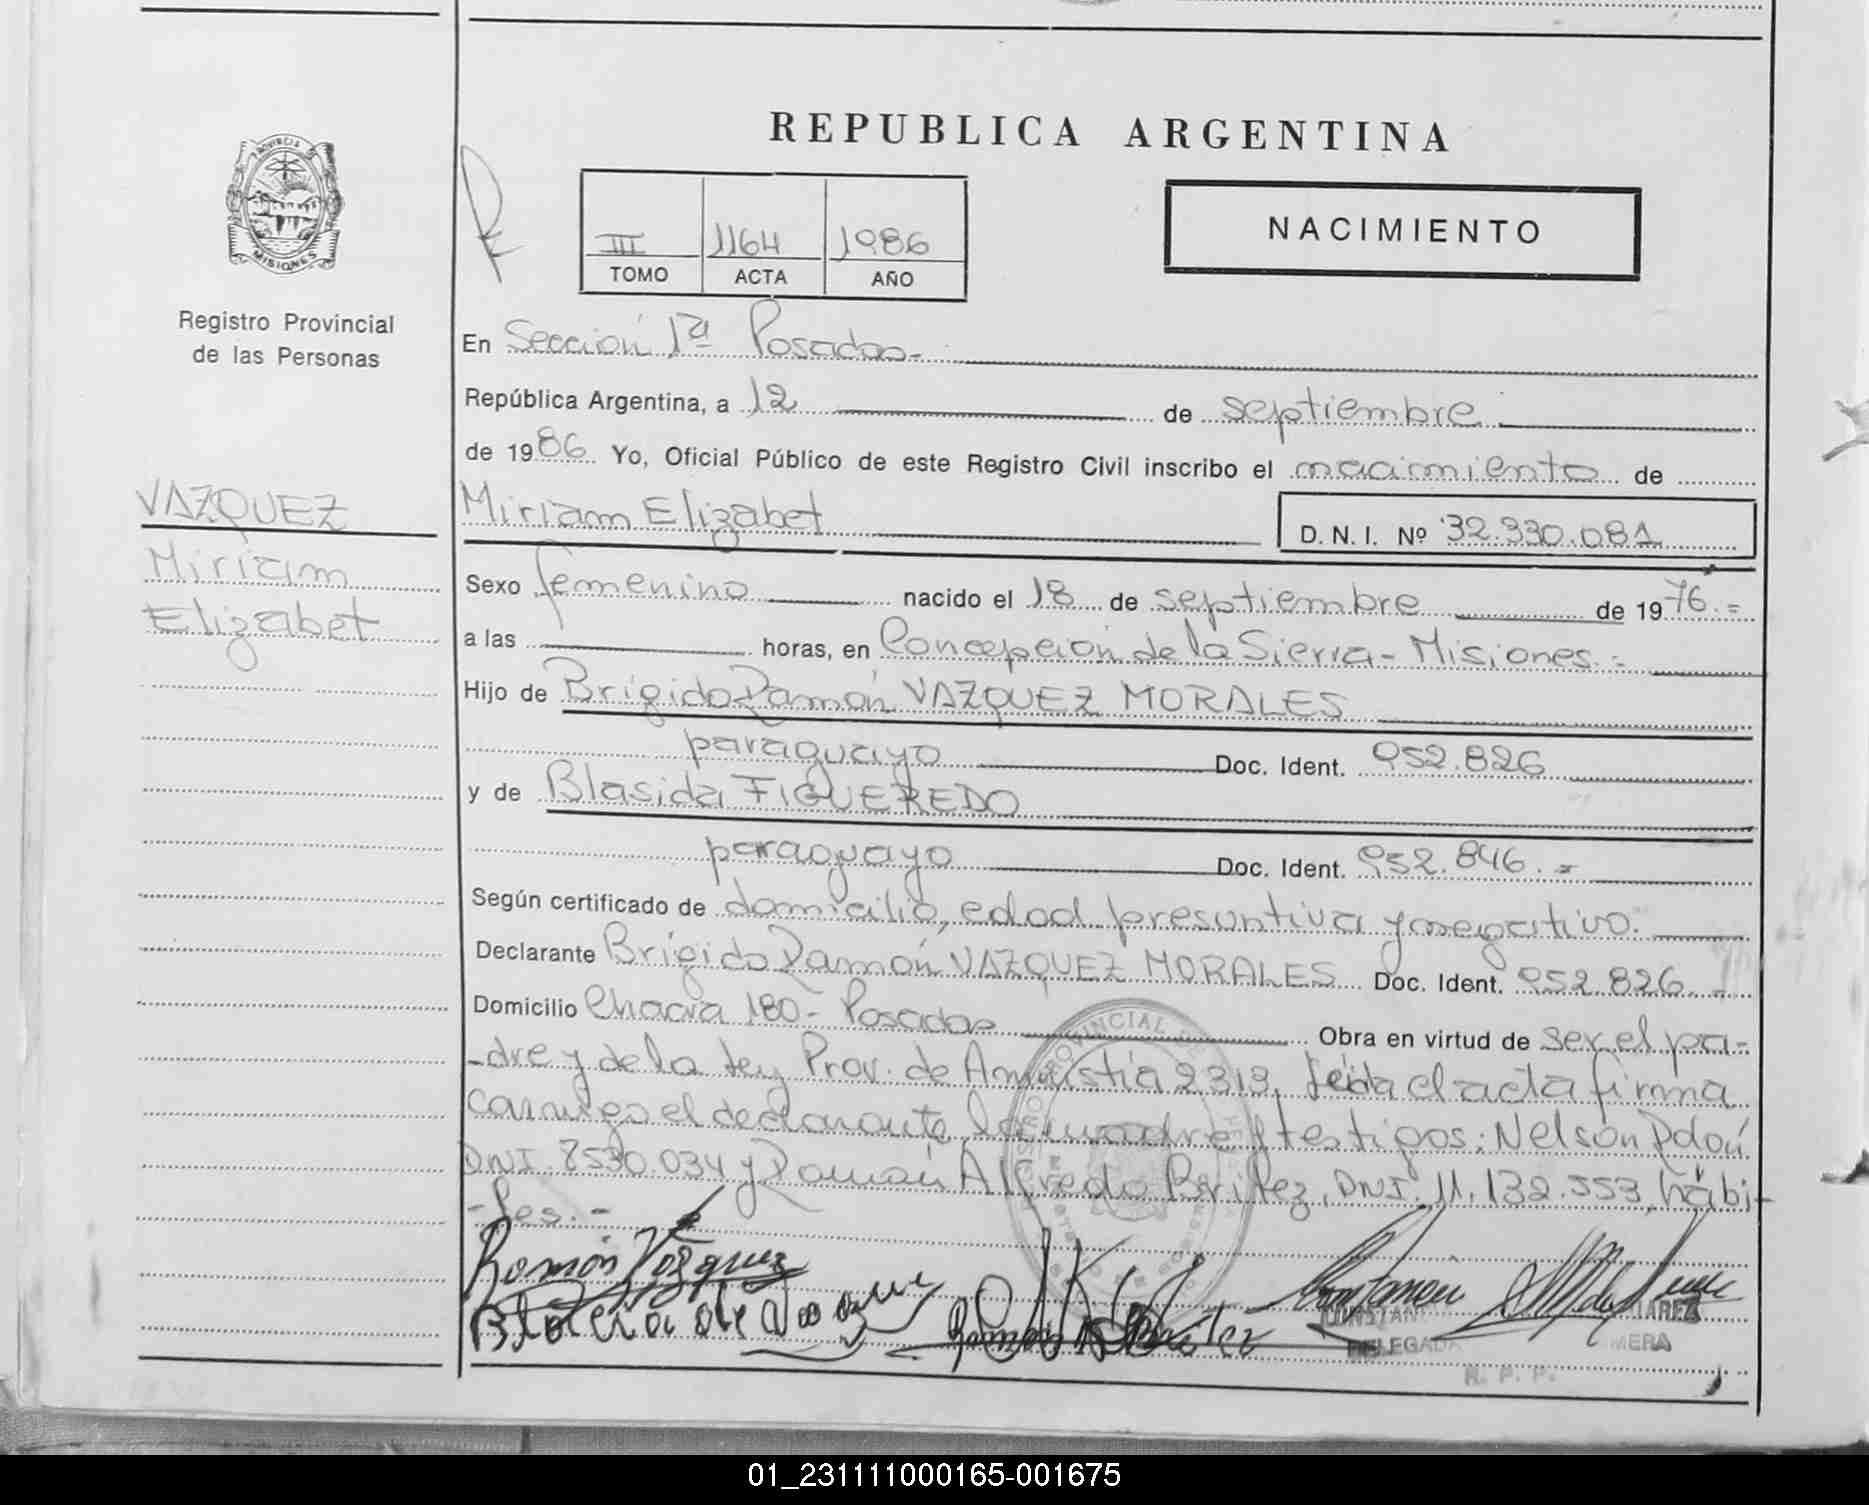 REPUBLICA ARGENTINA
PROVINCIA DE
MISIONES
III 1164 1986
TOMO ACTA AÑO
NACIMIENTO
Registro Provincial
de las Personas
En Sección 1ª Posadas-
República Argentina, a 12 de septiembre
de 1986 Yo, Oficial Público de este Registro Civil inscribo el nacimiento de
VAZQUEZ
Miriam Elizabet D.N.I. Nº 32.330.081
Miriam
Elizabet
Sexo femenino nacido el 18 de septiembre de 1976.=
a las horas, en Concepción de la Sierra - Misiones.=
Hijo de Brígido Ramón VAZQUEZ MORALES
paraguayo Doc. Ident. 952.826
y de Blasida FIGUEREDO
paraguayo Doc. Ident. 952.846.=
Según certificado de domicilio, edad presuntiva y negativo.
Declarante Brígido Ramón VAZQUEZ MORALES Doc. Ident. 952.826.-
Domicilio Chacra 180.- Posadas Obra en virtud de ser el pa-
-dre y de la Ley Prov. de Amnistía 2313. Leída el acta firma
conmigo el declarante, la madre y testigos: Nelson
DNI. 8530.034 y Ramón Alfredo Britez, DNI. 11.132.553, hábi-
-les.-
Ramón Vázquez
Ramón A Britez
DELEGADA
R. P. P.
01_231111000165-001675